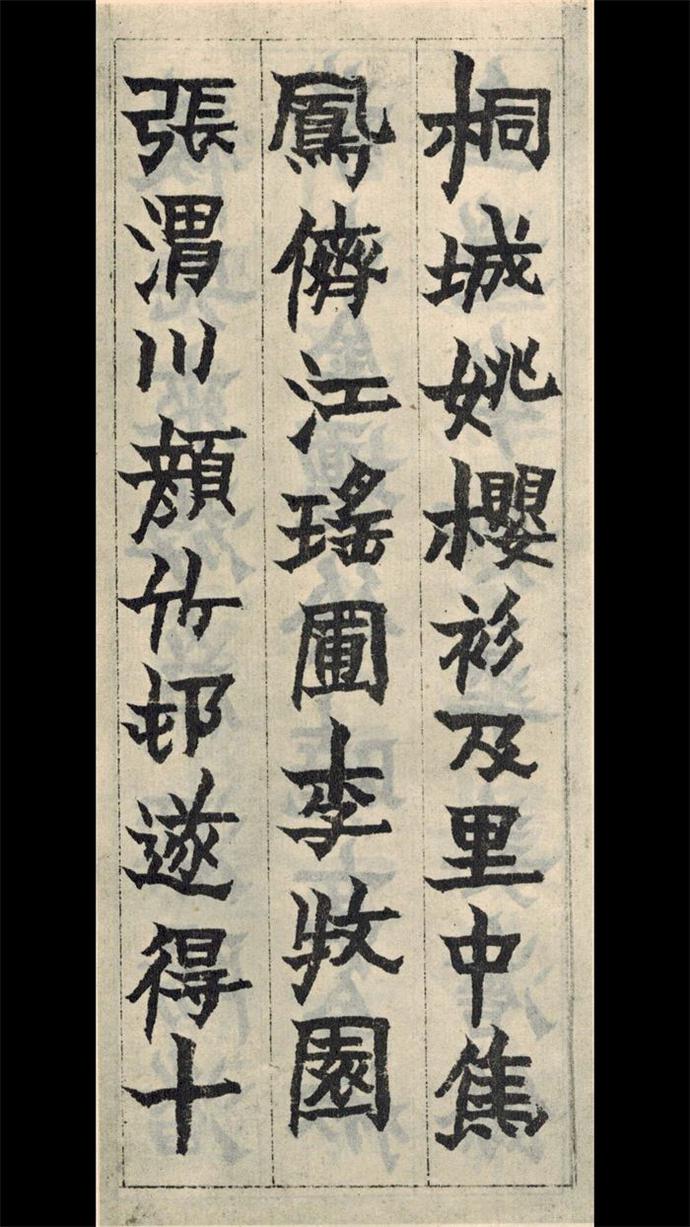 桐城姚櫻衫及里中焦
鳳儕江瑤圃李牧園
張渭川顏竹邨遂得十